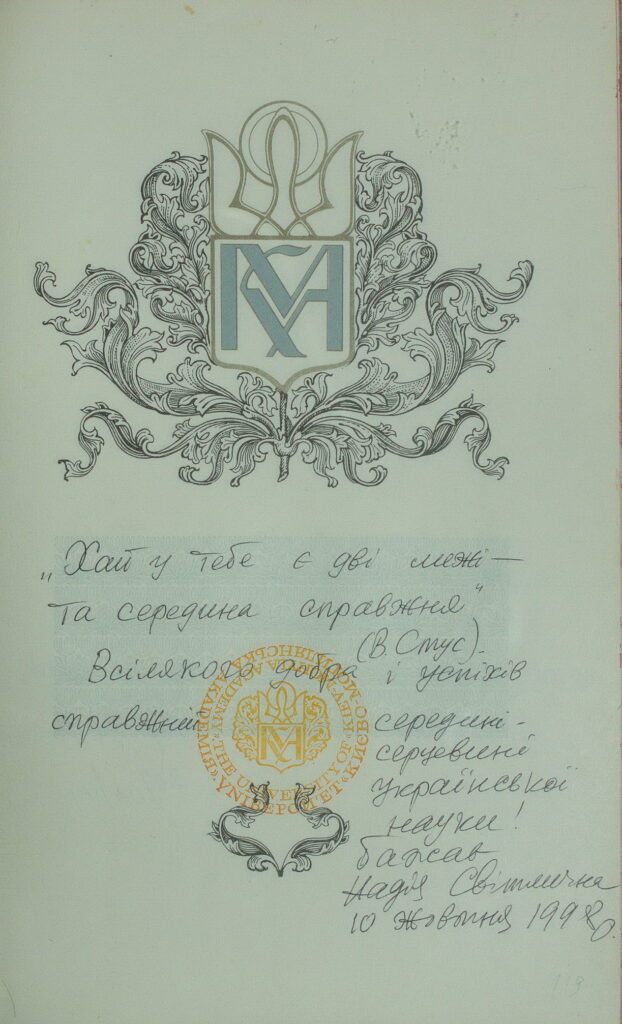 КМА
„Хай у тебе є дві межі —
та середина справжня"
(В. Стус).
Всілякого добра і успіхів
справжній середині -
серцевині
української
науки!
бажає
Надія Світлична
10 жовтня 1998 р.
THE UNIVERSITY OF KIEV-MOHYLA ACADEMY
УНІВЕРСИТЕТ «КИЄВО-МОГИЛЯНСЬКА АКАДЕМІЯ»
КМА
113